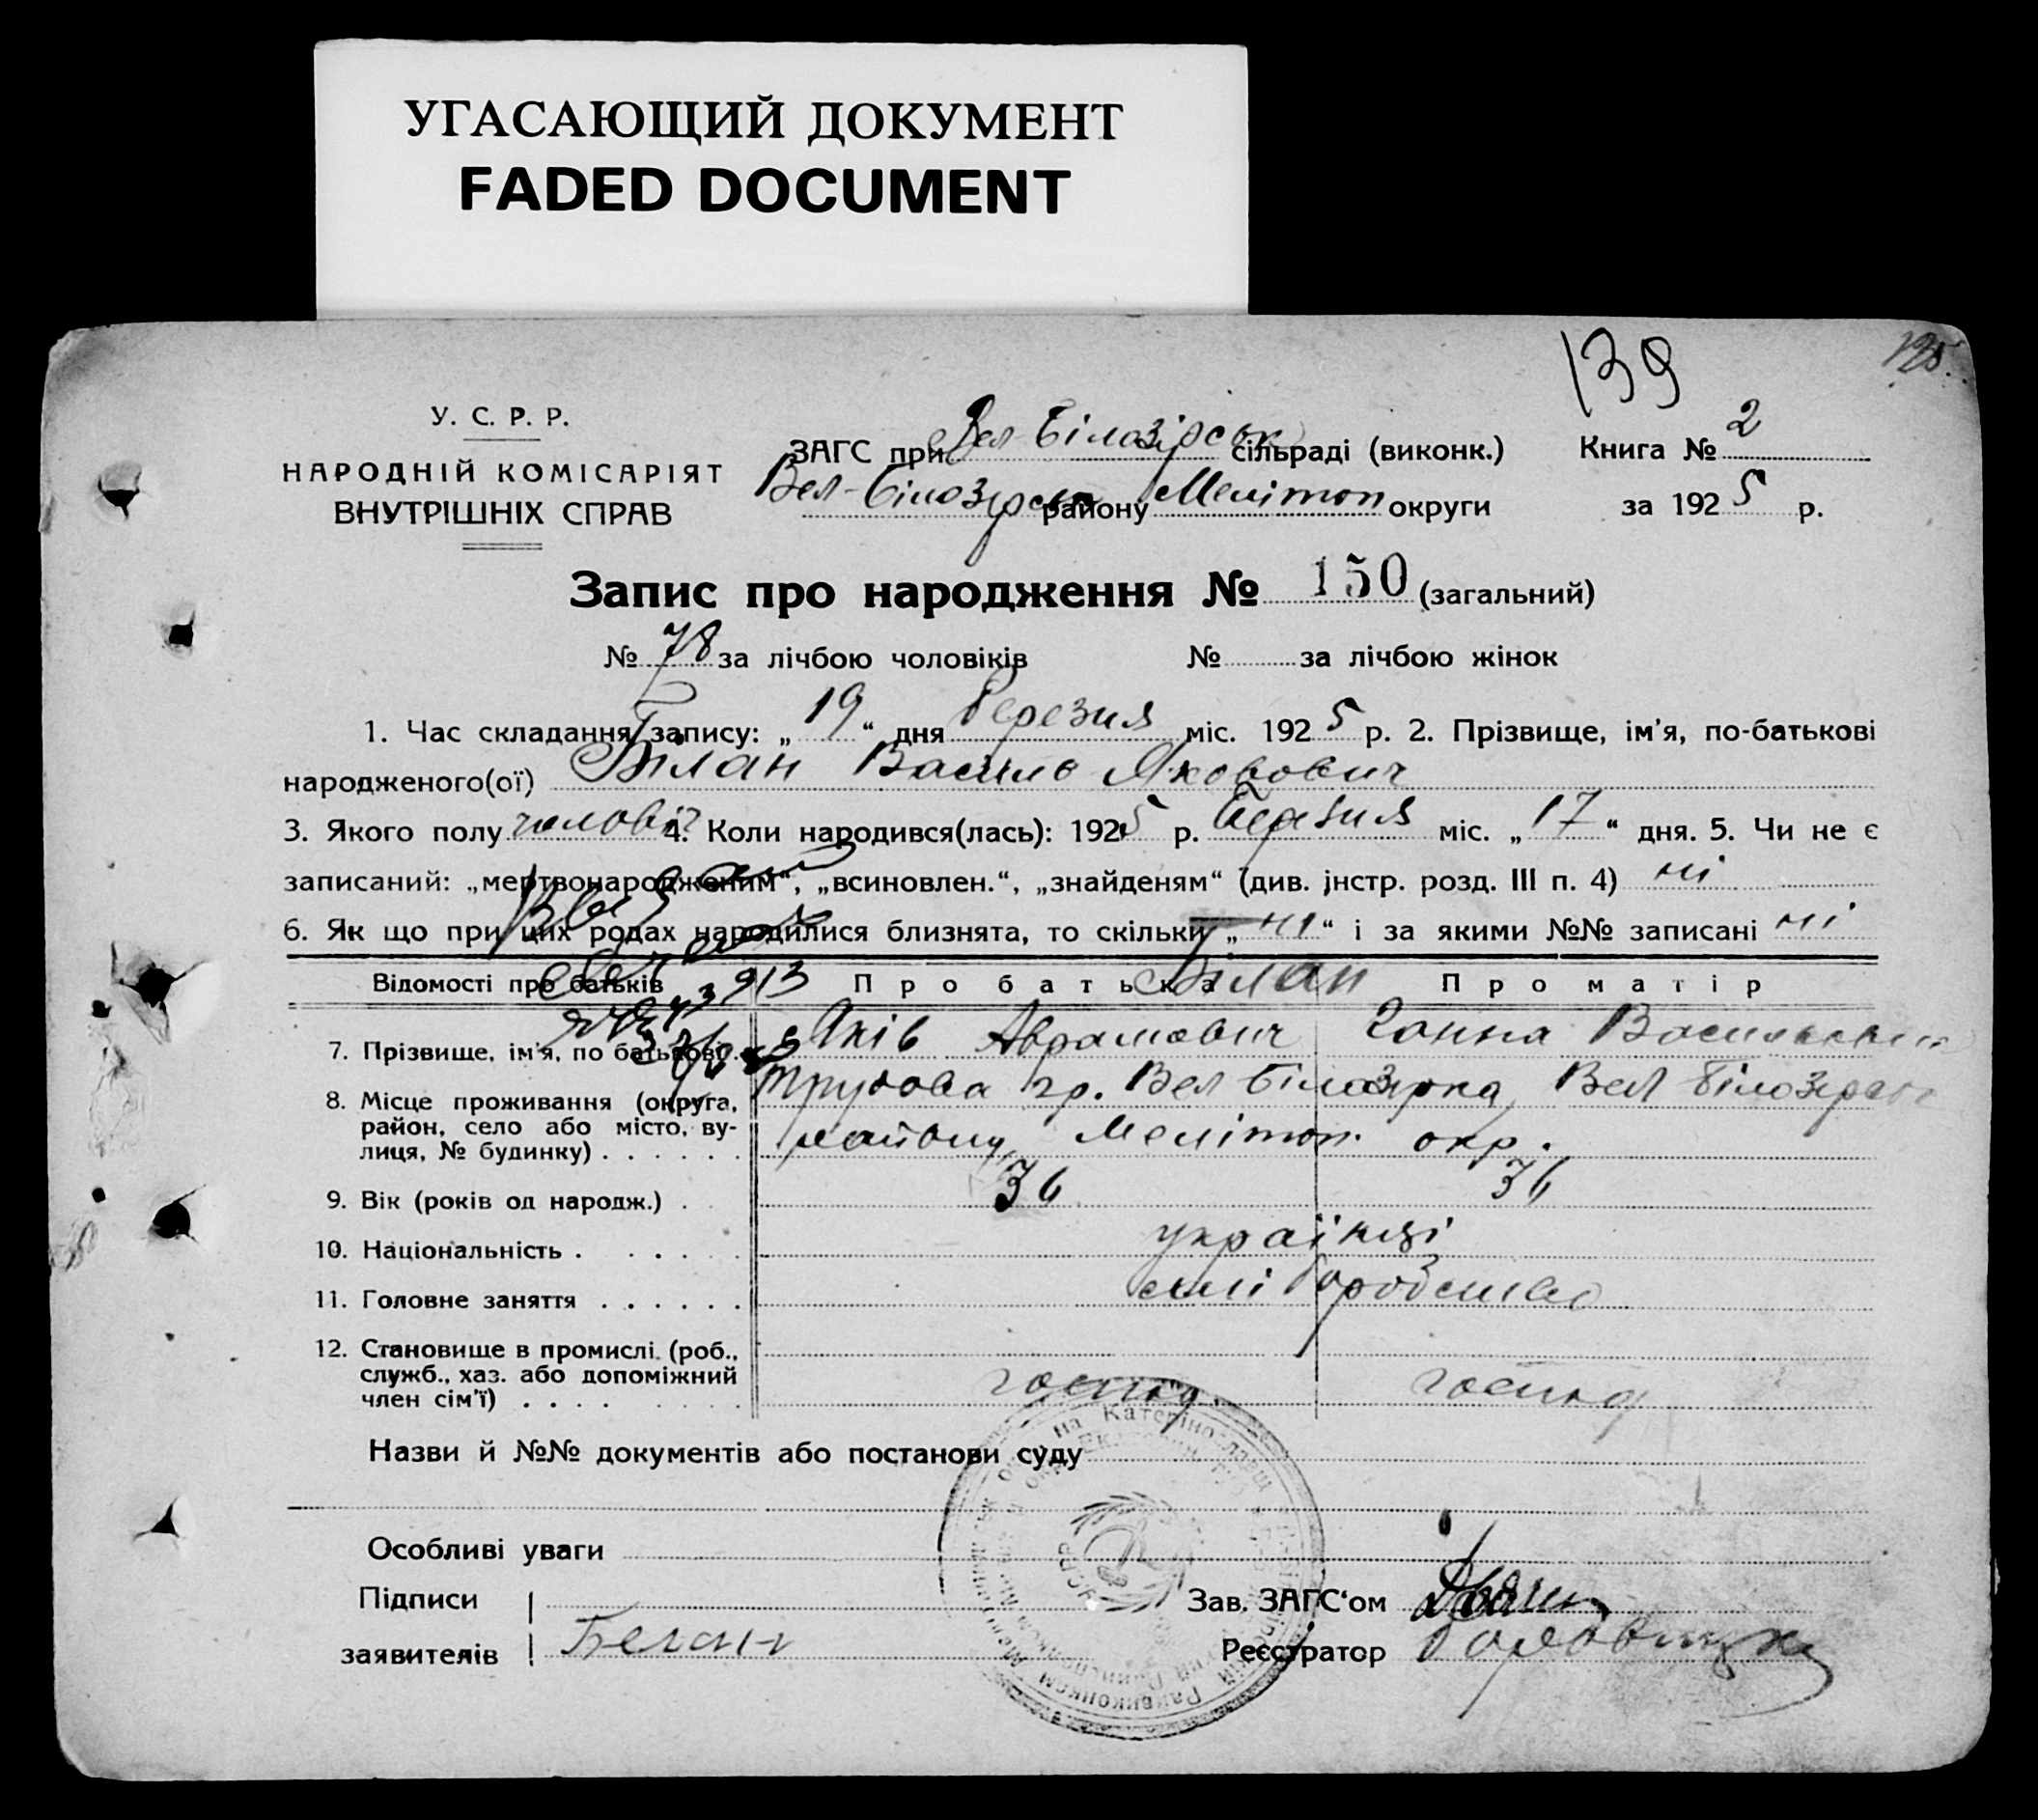 УГАСАЮЩИЙ ДОКУМЕНТ
FADED DOCUMENT
139
У. С. Р. Р.
НАРОДНІЙ КОМІСАРІЯТ
ВНУТРІШНІХ СПРАВ
ЗАГС при Вел-Білозірськ сільраді (виконк.) Книга № 2
Вел-Білозірськ району Мелітоп округи за 1925 р.
Запис про народження № 150 (загальний)
№ 78 за лічбою чоловіків № за лічбою жінок
1. Час складання запису: „ 19 “ дня березня міс. 1925 р. 2. Прізвище, ім'я, по-батькові
народженого(ої) Білан Василь Якович
3. Якого полу чоловіч 4. Коли народився(лась): 1925 р. березня міс. „ 17 “ дня. 5. Чи не є
записаний: „мертвонародженим“, „всиновлен.“, „знайденям“ (див. інстр. розд. III п. 4) ні
6. Як що при цих родах народилися близнята, то скільки „ ні “ і за якими №№ записані ні
Відомості про батьків Про батька Про матір
Білан
7. Прізвище, ім'я, по батькові Яків Аврамович Ганна Васильевна
8. Місце проживання (округа, район, село або місто, вулиця, № будинку) гр. Вел Білозірка, Вел Білозірськ
району, Мелітоп. окр.
9. Вік (років од народж.) 36 36
10. Національність українці
11. Головне заняття хліборобство
12. Становище в промислі (роб., служб., хаз. або допоміжний член сім'ї) господ. господ
Назви й №№ документів або постанови суду
Особливі уваги
Підписи Зав. ЗАГС'ом
заявителів Белан Реєстратор